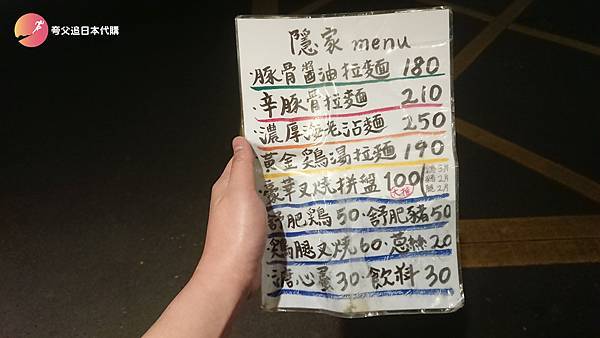 夸父追日本代購
隱家 menu
·豚骨醬油拉麵 180
·辛豚骨拉麵 210
·濃厚海老沾麵 250
·黃金鷄湯拉麵 190
·豪華叉燒拼盤 100
舒肥鷄 50·舒肥豬 50
鷄腿叉燒 60·蔥絲 20
·溏心蛋 30·飲料 30